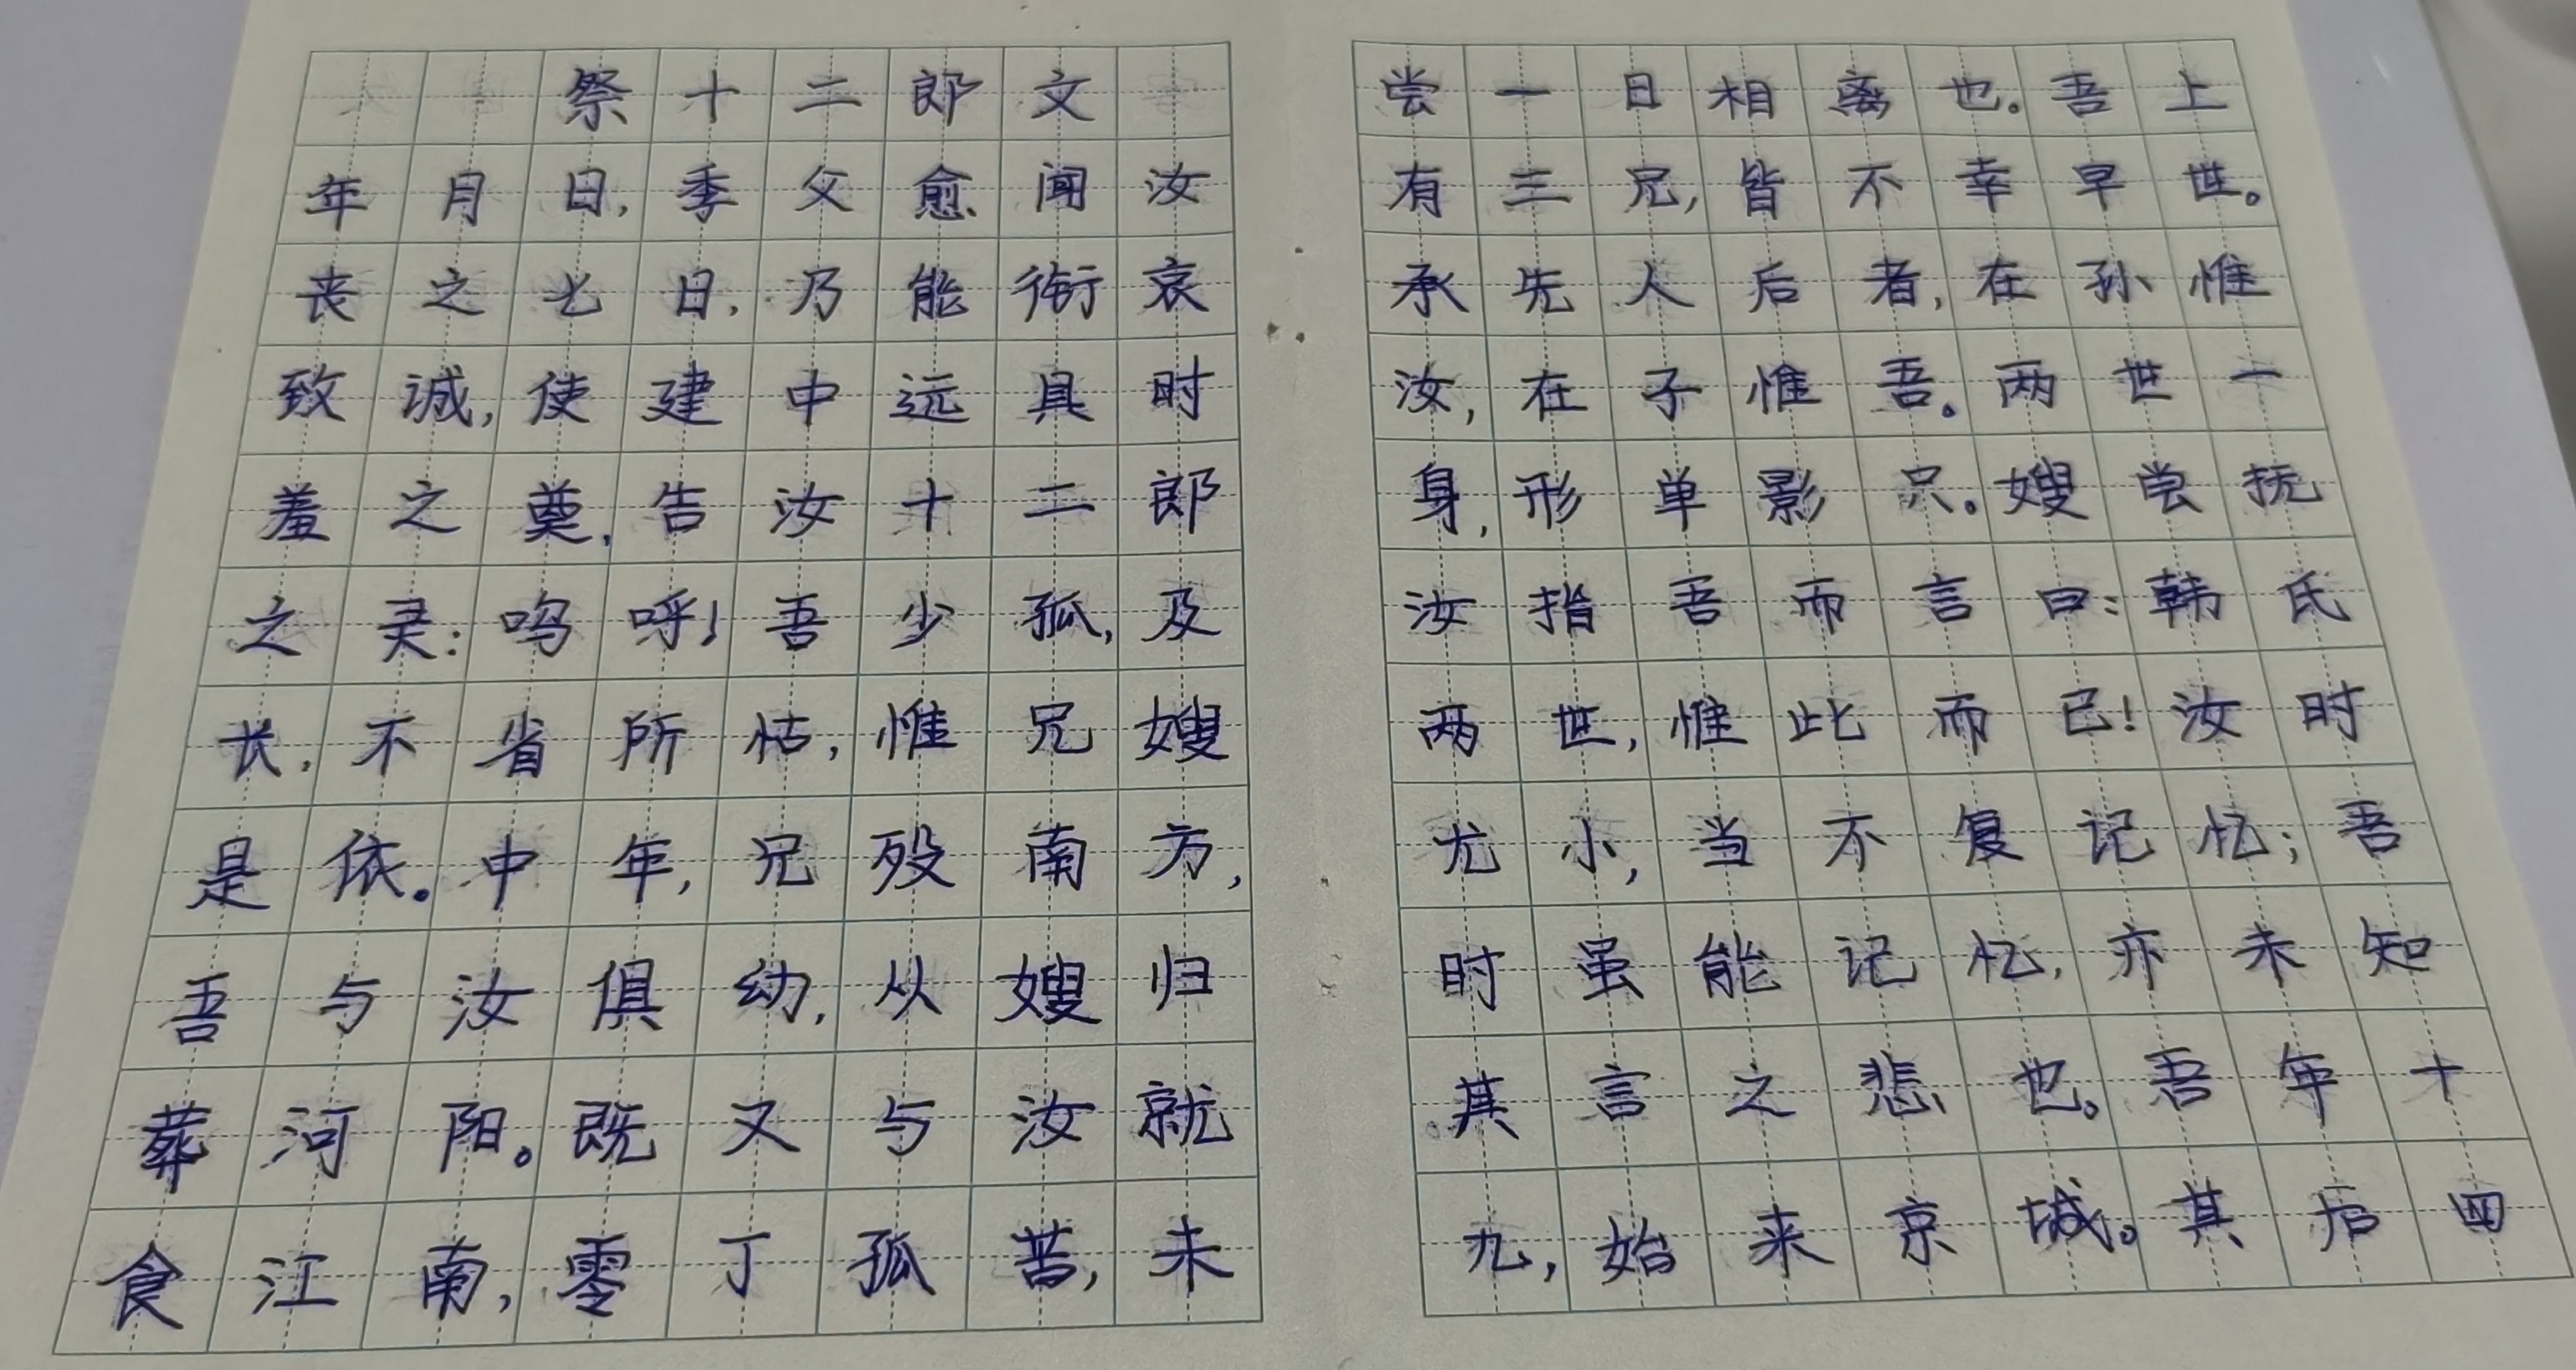 祭十二郎文
年月日,季父愈闻汝
丧之七日,乃能衔哀
致诚,使建中远具时
羞之奠,告汝十二郎
之灵:呜呼!吾少孤,及
长,不省所怙,惟兄嫂
是依。中年,兄殁南方,
吾与汝俱幼,从嫂归
葬河阳。既又与汝就
食江南,零丁孤苦,未
尝一日相离也。吾上
有三兄,皆不幸早世。
承先人后者,在孙惟
汝,在子惟吾。两世一
身,形单影只。嫂尝抚
汝指吾而言曰:韩氏
两世,惟此而已!汝时
尤小,当不复记忆;吾
时虽能记忆,亦未知
其言之悲也。吾年十
九,始来京城。其后四